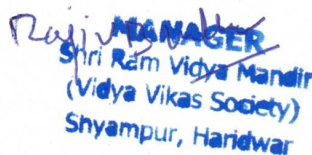 MANAGER
Shri Ram Vidya Mandir
(Vidya Vikas Society)
Shyampur, Haridwar